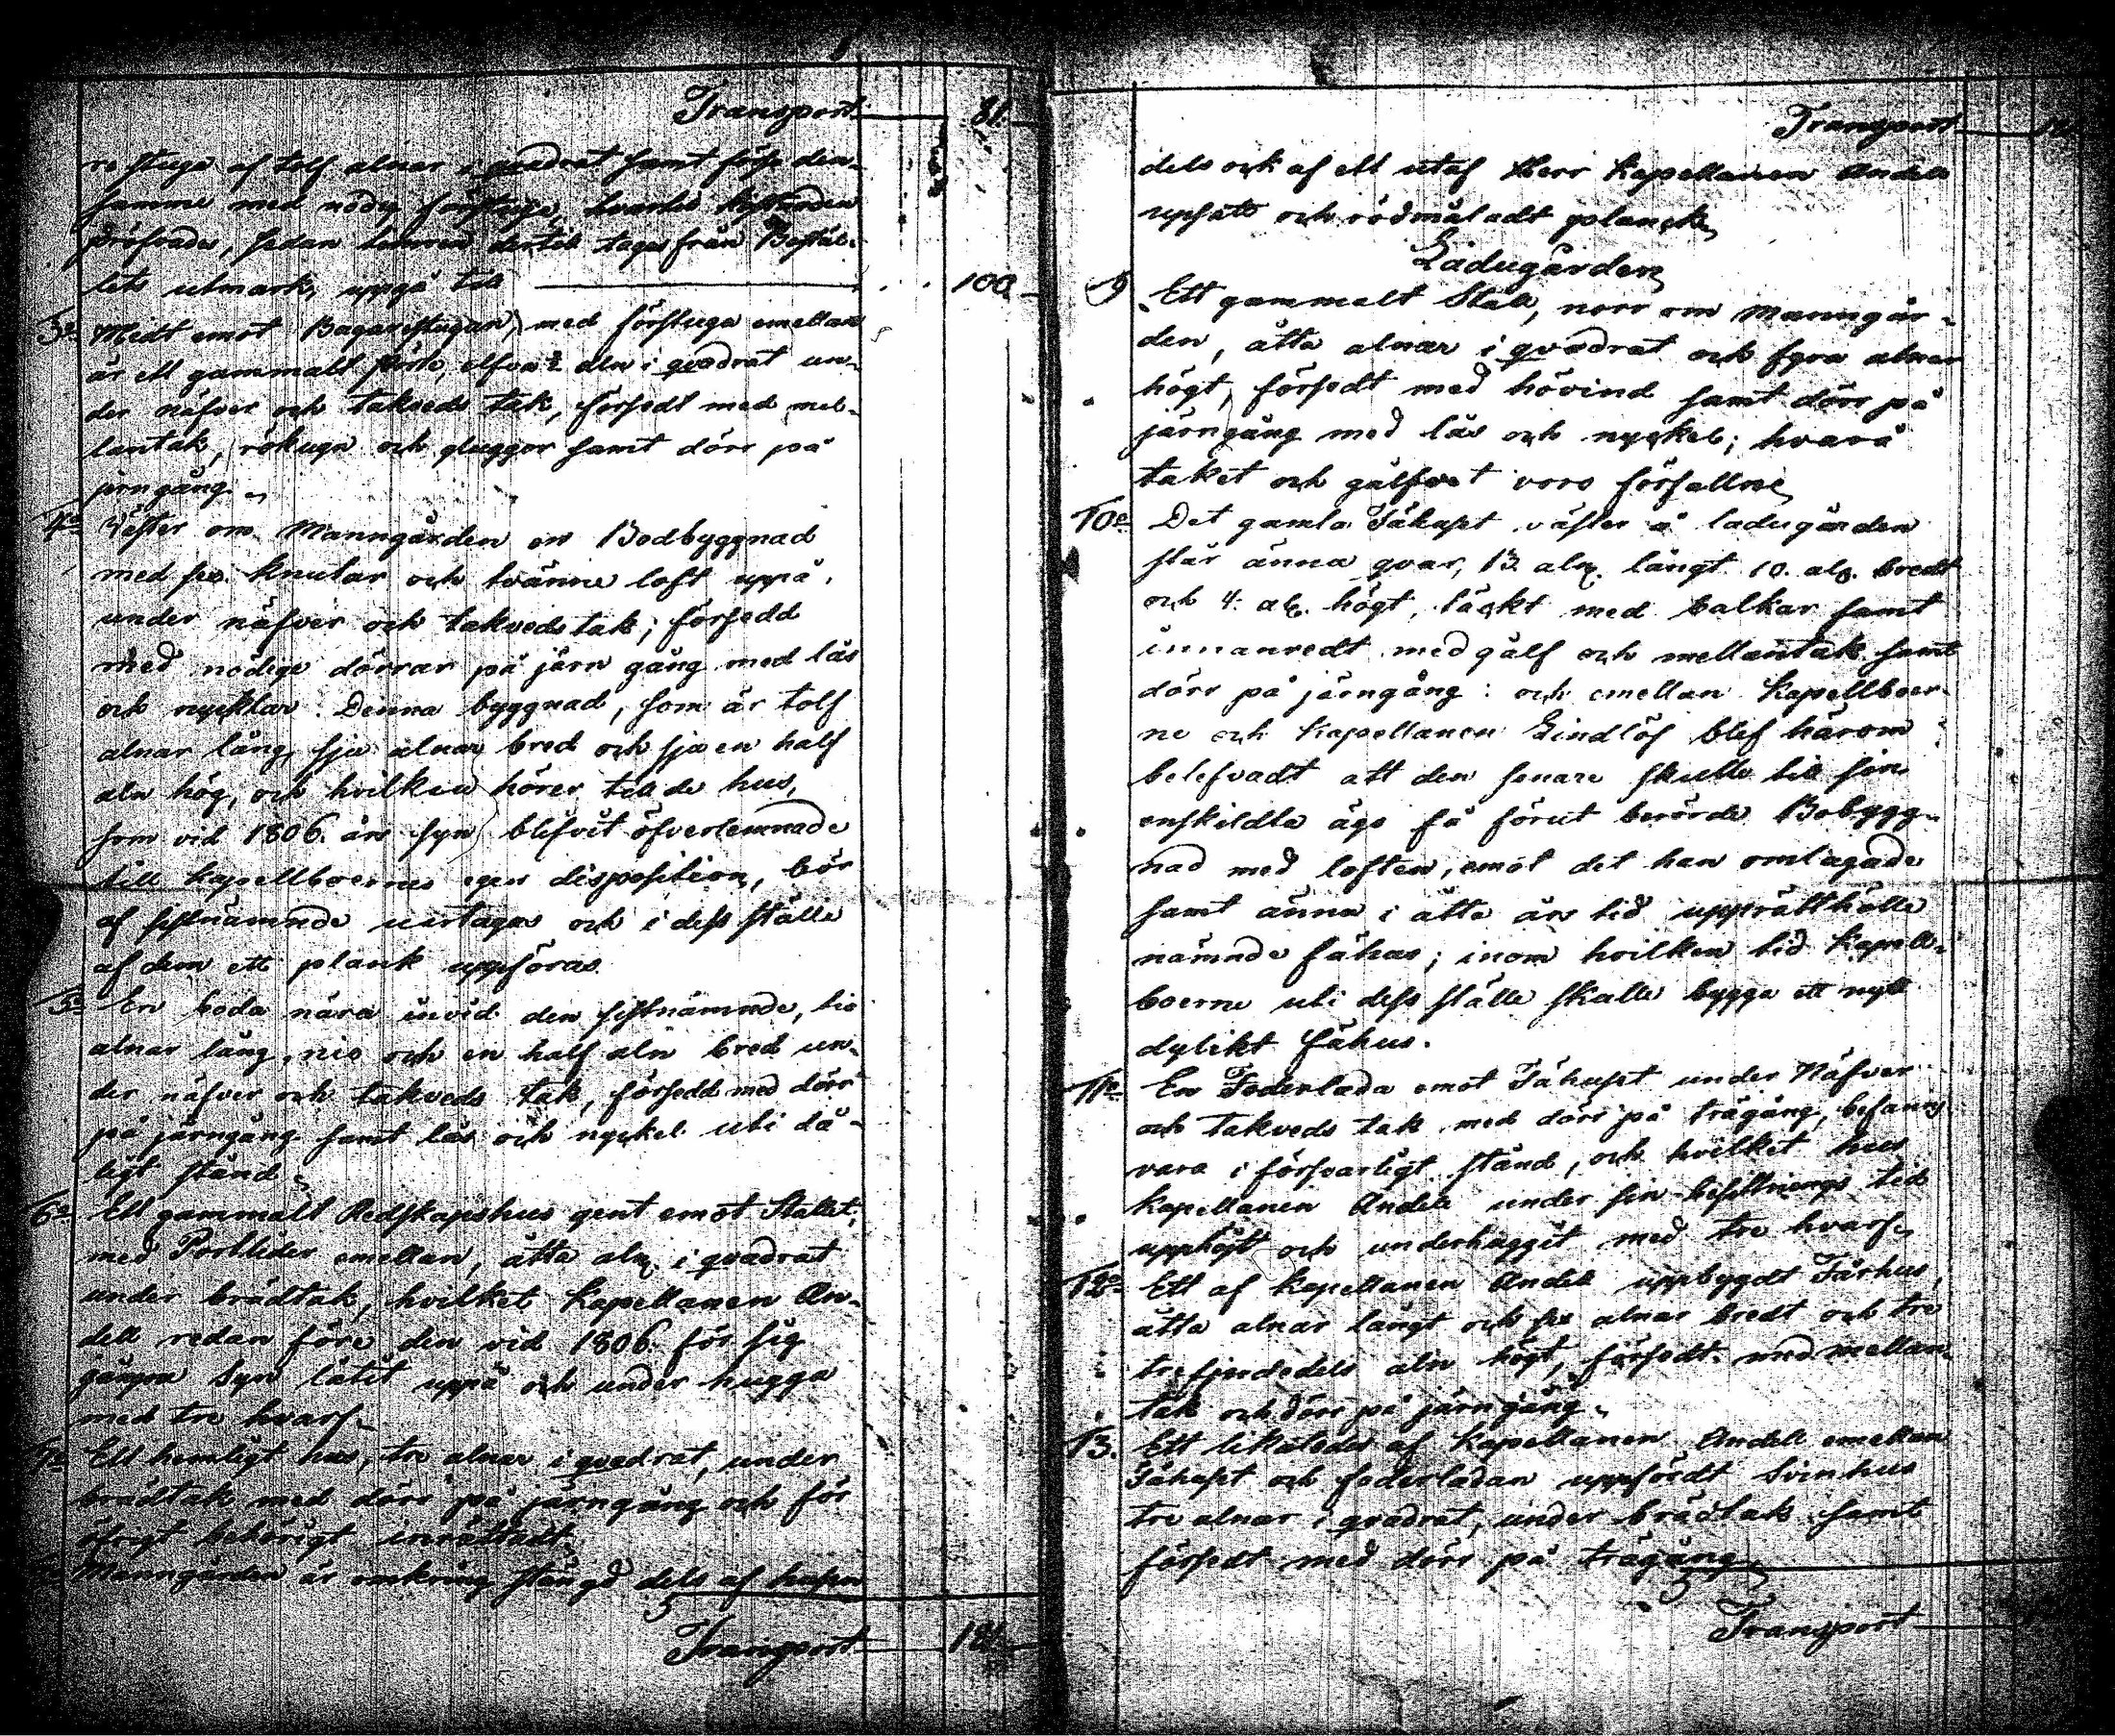 Transport 81.
re stuga af tolf alnar i qvadrat samt förse den-
samma med nödig förstuga, hvartil kostnaden
pröfvades, sedan timren dertil tages från Bostäl-
lets utmark, uppgå till 100
3o Midt emot Bagarestugan, med förstuga emellan
är ett gammalt pörte, elfva ½ aln i qvadrat un-
der näfver och takveds tak, försedt med mel-
lantak, rökugn och gluggor samt dörr på
jerngång.
4o Väster om Manngården en Bodbyggnad
med sex knutar och tvänne loft uppå,
under näfver och takveds tak; försedd
med nödige dörrar på järn gång med lås
och nycklar. Denna byggnad, som är tolf
alnar lång, sju alnar bred och sju en half
aln hög, och hvilken hörer till de hus,
som vid 1806. års syn blifvit öfverlemnade
till kapellboernes egen disposition, bör
af sistnämnde urtagas och i dess ställe
af dem ett plank uppföras.
5o En boda nära invid den sistnämnde, tio
alnar lång, nio och en half aln bred un-
der näfver och takveds tak, försedd med dörr
på järngång samt lås och nyckel uti då-
ligt stånd
6o Ett gammalt Redskapshus gent emot Stallet,
med Portlider emellan, åtta aln i qvadrat
under brädtak, hvilket Kapellanen An-
dell redan före den vid 1806. för sig
gångna Syn låtit uppå och under hugga
med tre hvarf
7o Ett hemligt hus, tre alnar i qvadrat, under
brädtak med dörr på järngång och för
öfrigt behörigt inrättadt.
Manngården är omkring stängd dels af husen
Transport 181.
Transport
dels ock af ett utaf Herr Kapellanen Andell
upsatt och rödmåladt planck
Ladugården
9 Ett gammalt Stall, norr om manngår-
den, åtta alnar i qvadrat och fyra alnar
högt, försedt med hövind samt dörr på
järngång med lås och nyckel; hvarå
taket och gålfvet voro förfallne
10o Det gamla Fähuset väster å ladugården
står änna qvar, 13. aln. långt 10. aln. bredt
och 4. aln. högt, täckt med balkar samt
innanredt med gålf och mellantak samt
dörr på järngång: och emellan Kapellboer-
ne och Kapellanen Lindlöf blef härom
belefvadt att den senare skulle till sin
enskildta ägo få förut berörde Bobygg-
nad med loften, emot det han omlagade
samt änna i åtta års tid upprätthålle
nämnde fähus; inom hvilken tid Kapell-
boerne uti dess ställe skulle bygga ett nytt
dylikt fähus.
11o En Foderlada emot Fähuset under Näfver
och takveds tak med dörr på trägång, befanns
vara i försvarligt stånd, och hvilket hus
Kapellanen Andell under sin besittnings tid
upphöjt och underhuggit med tre hvarf
12o Ett af Kapellanen Andell uppbygdt Fårhus,
åtta alnar långt och sex alnar bredt och tre
tre fjerdedels aln högt, försedt med mellan-
tak och dörr på järngång
13. Ett likaledes af Kapellanen Andell emellan
Fähuset och foderladan uppfördt Svinhus
tre alnar i qvadrat, under brädtak samt
försedt med dörr på trägång
Transport